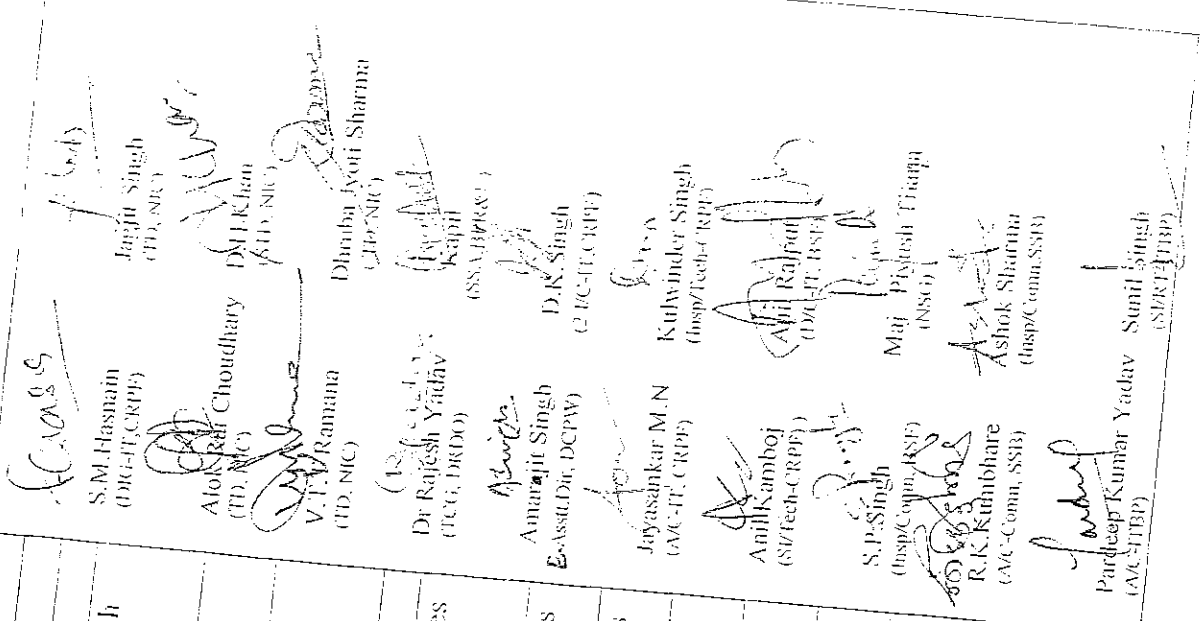 h
es
s
s
S.M.Hasnain
(DIG-IT,CRPF)
Jagjit Singh
(TD, NIC)
Alok Rai Choudhary
(TD, NIC)
D.H.Khan
(STD, NIC)
V.T.V Ramana
(TD, NIC)
Dhruba Jyoti Sharma
(TD, NIC)
Dr Rajesh Yadav
(TCG, DRDO)
Kapil
(SSA,BPR&D)
Amarajit Singh
E-Asstt.Dir, DCPW)
D.K.Singh
(2 I/C-IT,CRPF)
Jayasankar M.N
(A/C-IT, CRPF)
Kulwinder Singh
(Insp/Tech-CRPF)
Anil Kamboj
(SI/Tech-CRPF)
Anil Rajput
(D/C-IT, BSF)
S.P.Singh
(Insp/Comn,BSF)
Maj Piyush
(NSG)
R.K.Kumbhare
(A/C-Comn, SSB)
Ashok Sharma
(Insp/Comn,SSB)
Pardeep Kumar Yadav
(A/C-ITBP)
Sunil Singh